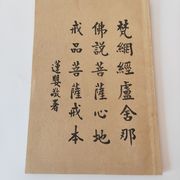 梵網經盧舍那
佛說菩薩心地
戒品菩薩戒本
蓮嬰敬署